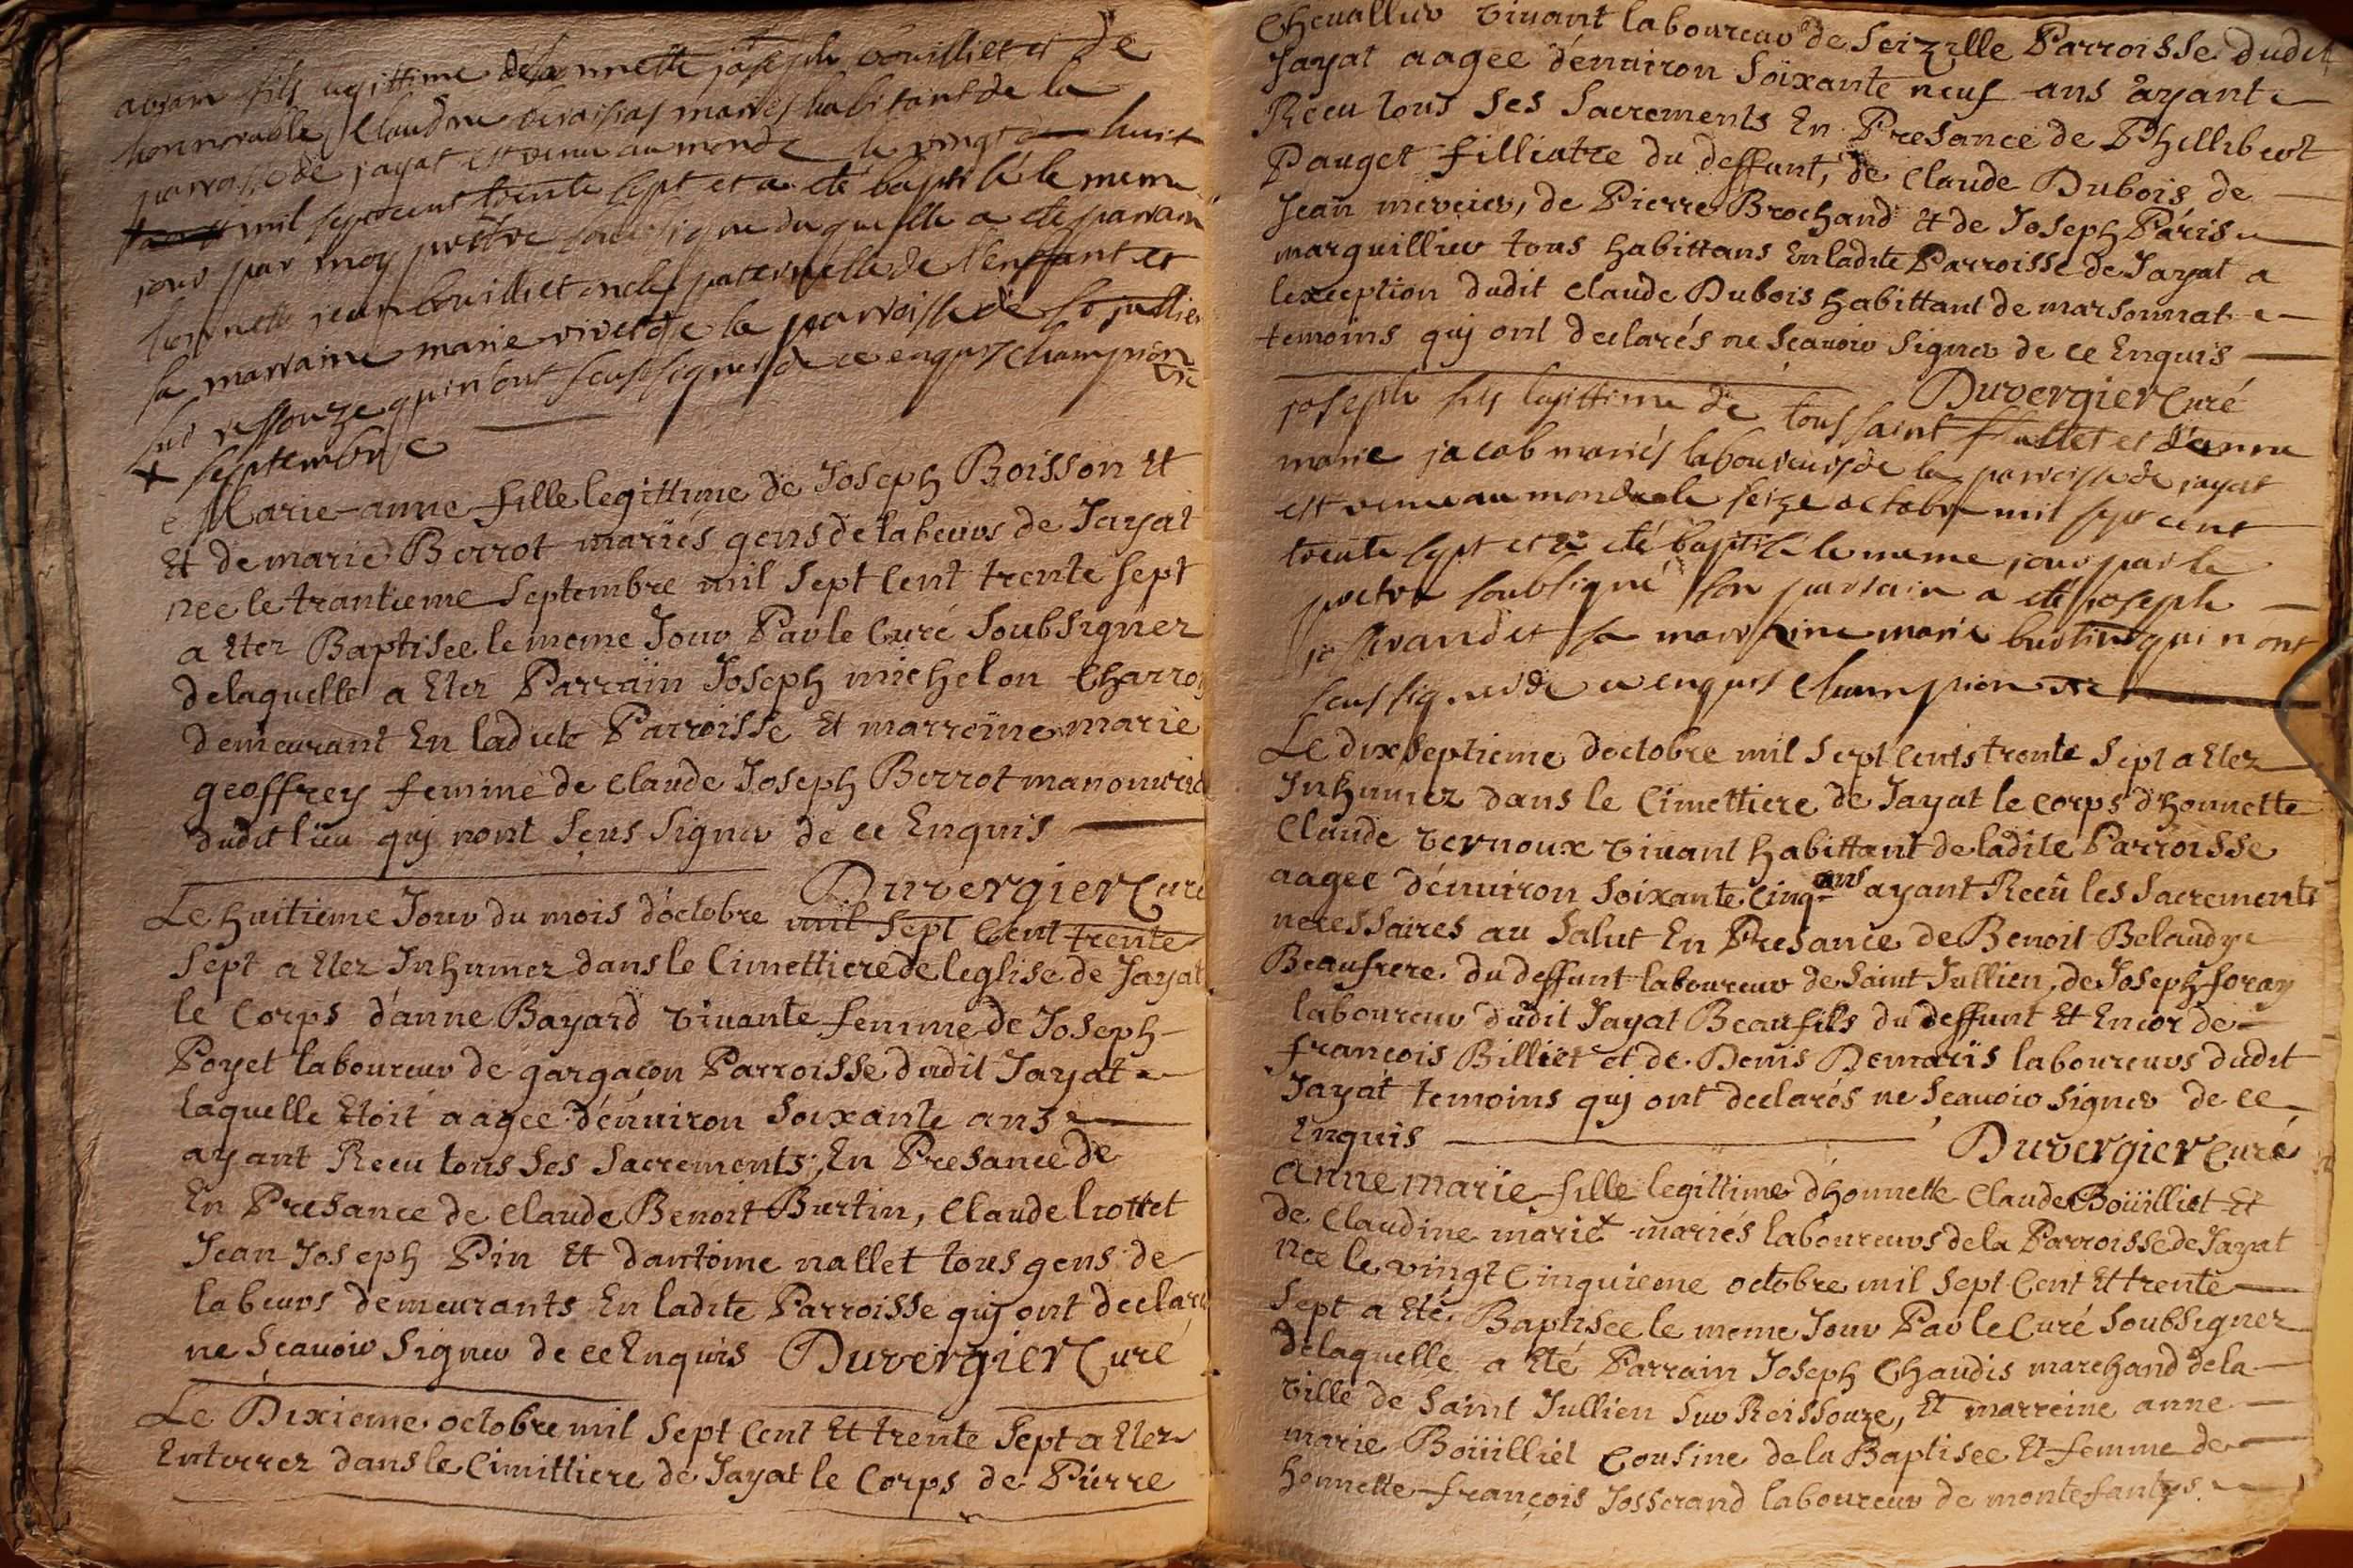 fils legittime joseph bouilliet et de
honnorable Claudine mariés habitant de la
parroisse de jayat est venu au monde le vingt huit
mil sept cent trente sept et a eté baptisé le meme
jour par moy prêtre soubsigne duquelle a ete parrain
honnette jean bouilliet oncle paternelle de l'enffant et
sa marraine marie de la parroisse de st jullien
sur ressouze qui nont seus signer de ce enquis Champion vic
+ septembre
Marie-anne fille legittime de Joseph Boisson Et
Et de marie Berrot mariés gens de labeurs de Jayat
nee le trantieme Septembre mil Sept Cent trente Sept
a Eter Baptisee le meme Jour Par le Curé SoubSigner
delaquelle a Eter Parrain Joseph michelon Charron
demeurant En ladite Parroisse Et marreine marie
geoffrey femme de Claude Joseph Berrot manouvrie
dudit lieu quj nont Seus Signer de ce Enquis
Duvergier Curé
Le huitieme Jour du mois d'octobre mil Sept Cent trente
Sept a Eter Inhumer dans le Cimettiere de leglise de Jayat
le Corps d'anne Bayard vivante femme de Joseph
Poyet laboureur de gargaçon Parroisse dudit Jayat
laquelle Etoit aagee d'environ Soixante ans
ayant Receu tous Ses Sacrements, En Presance de
En Presance de Claude Benoit Burtin, Claude
Jean Joseph Pin Et d'antoine nallet tous gens de
labeurs demeurants En ladite Parroisse quj ont declaré
ne Sçavoir Signer de ce Enquis Duvergier Curé
Le Dixieme octobre mil Sept Cent Et trente Sept a Eter
Enterrer dans le Cimittiere de Jayat le Corps de Pierre
Chevallier vivant laboureur de Seizille Parroisse dudit
Jayat aagee d'environ Soixante neuf ans ayant
Receu tous Ses Sacrements En Presance de Phillibert
Pauget filliatre du deffunt, de Claude Dubois de
Jean mercier, de Pierre Brochand Et de Joseph Pâris
marguillier tous habittans En ladite Parroisse de Jayat a
lexception dudit Claude Dubois habittant de marsonnat
temoins quj ont declarés ne Sçavoir Signer de ce Enquis
Duvergier Curé
joseph fils legittime de toussaint et d'anne
marie jacob mariés laboureurs de la parroisse de jayat
est venu au monde le seize octobre mil sept cent
trente sept et a eté baptisé le meme jour par le
pretre soubsigné son parrain a eté joseph
josserand et sa marraine marie burtin qui n ont
seus signer de ce enquis Champion vic
Le dixSeptieme d'octobre mil Sept Cents trente Sept a Eter
Inhumez dans le Cimettiere de Jayat le Corps d'honnette
Claude vernoux vivant habittant de ladite Parroisse
aagee d'environ Soixante Cinq ans ayant Receû les Sacrements
necessaires au Salut En Presance de Benoit
Beaufrere du deffunt laboureur de Saint Jullien, de Joseph foray
laboureur dudit Jayat Beaufils du deffunt Et Encor de
françois Billiet et de Denis Demaris laboureurs dudit
Jayat temoins quj ont declarés ne Sçavoir Signer de ce
Enquis Duvergier Curé
anne marie fille legittime d'honnette Claude Boüilliet Et
de Claudine mariet mariés laboureurs de la Parroisse de Jayat
nee le vingt Cinquieme octobre mil Sept Cent Et trente
Sept a Eté Baptisee le meme Jour Par le Curé SoubSigner
delaquelle a Eté Parrain Joseph Chaudis marchand de la
ville de Saint Jullien Sur Reissouze, Et marreine anne
marie Boüilliet Cousine de la Baptisee Et femme de
honnette françois Josserand laboureur de